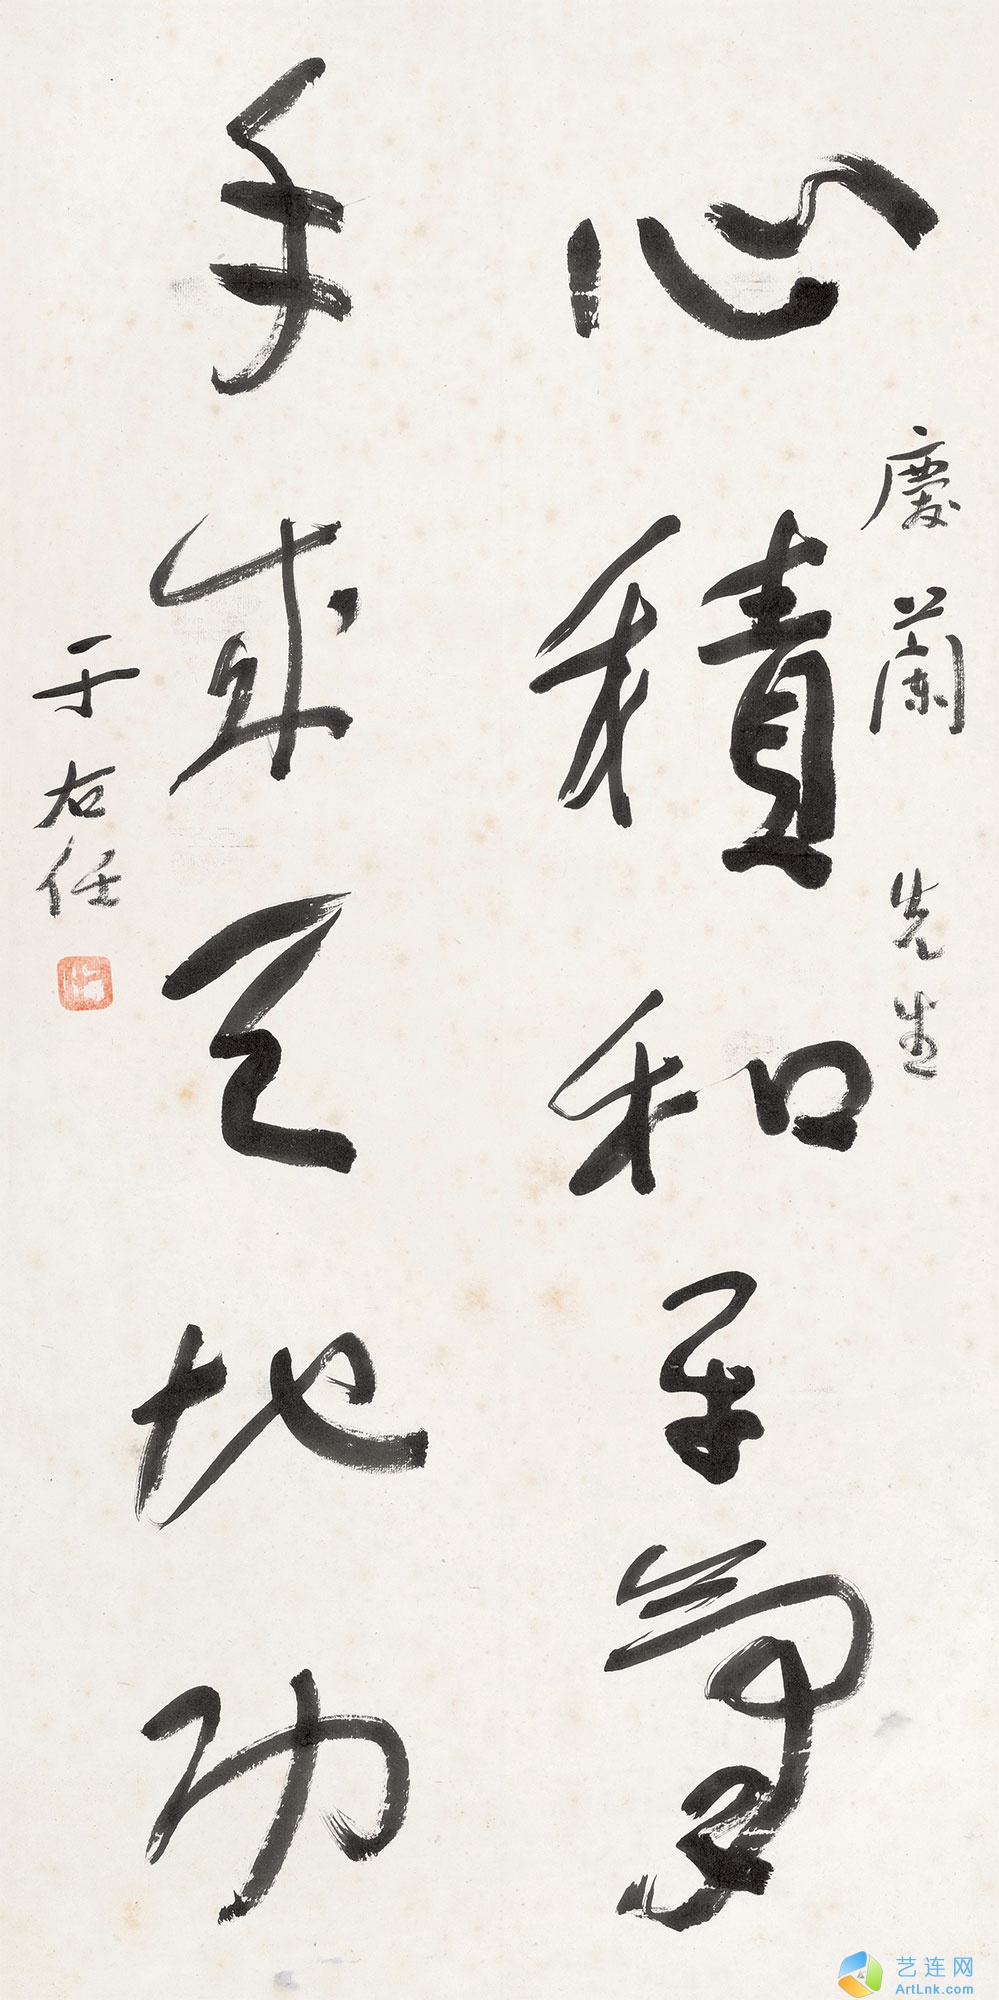 慶蘭先生
心積和平氣
手成天地功
于右任
艺连网
ArtLnk.com